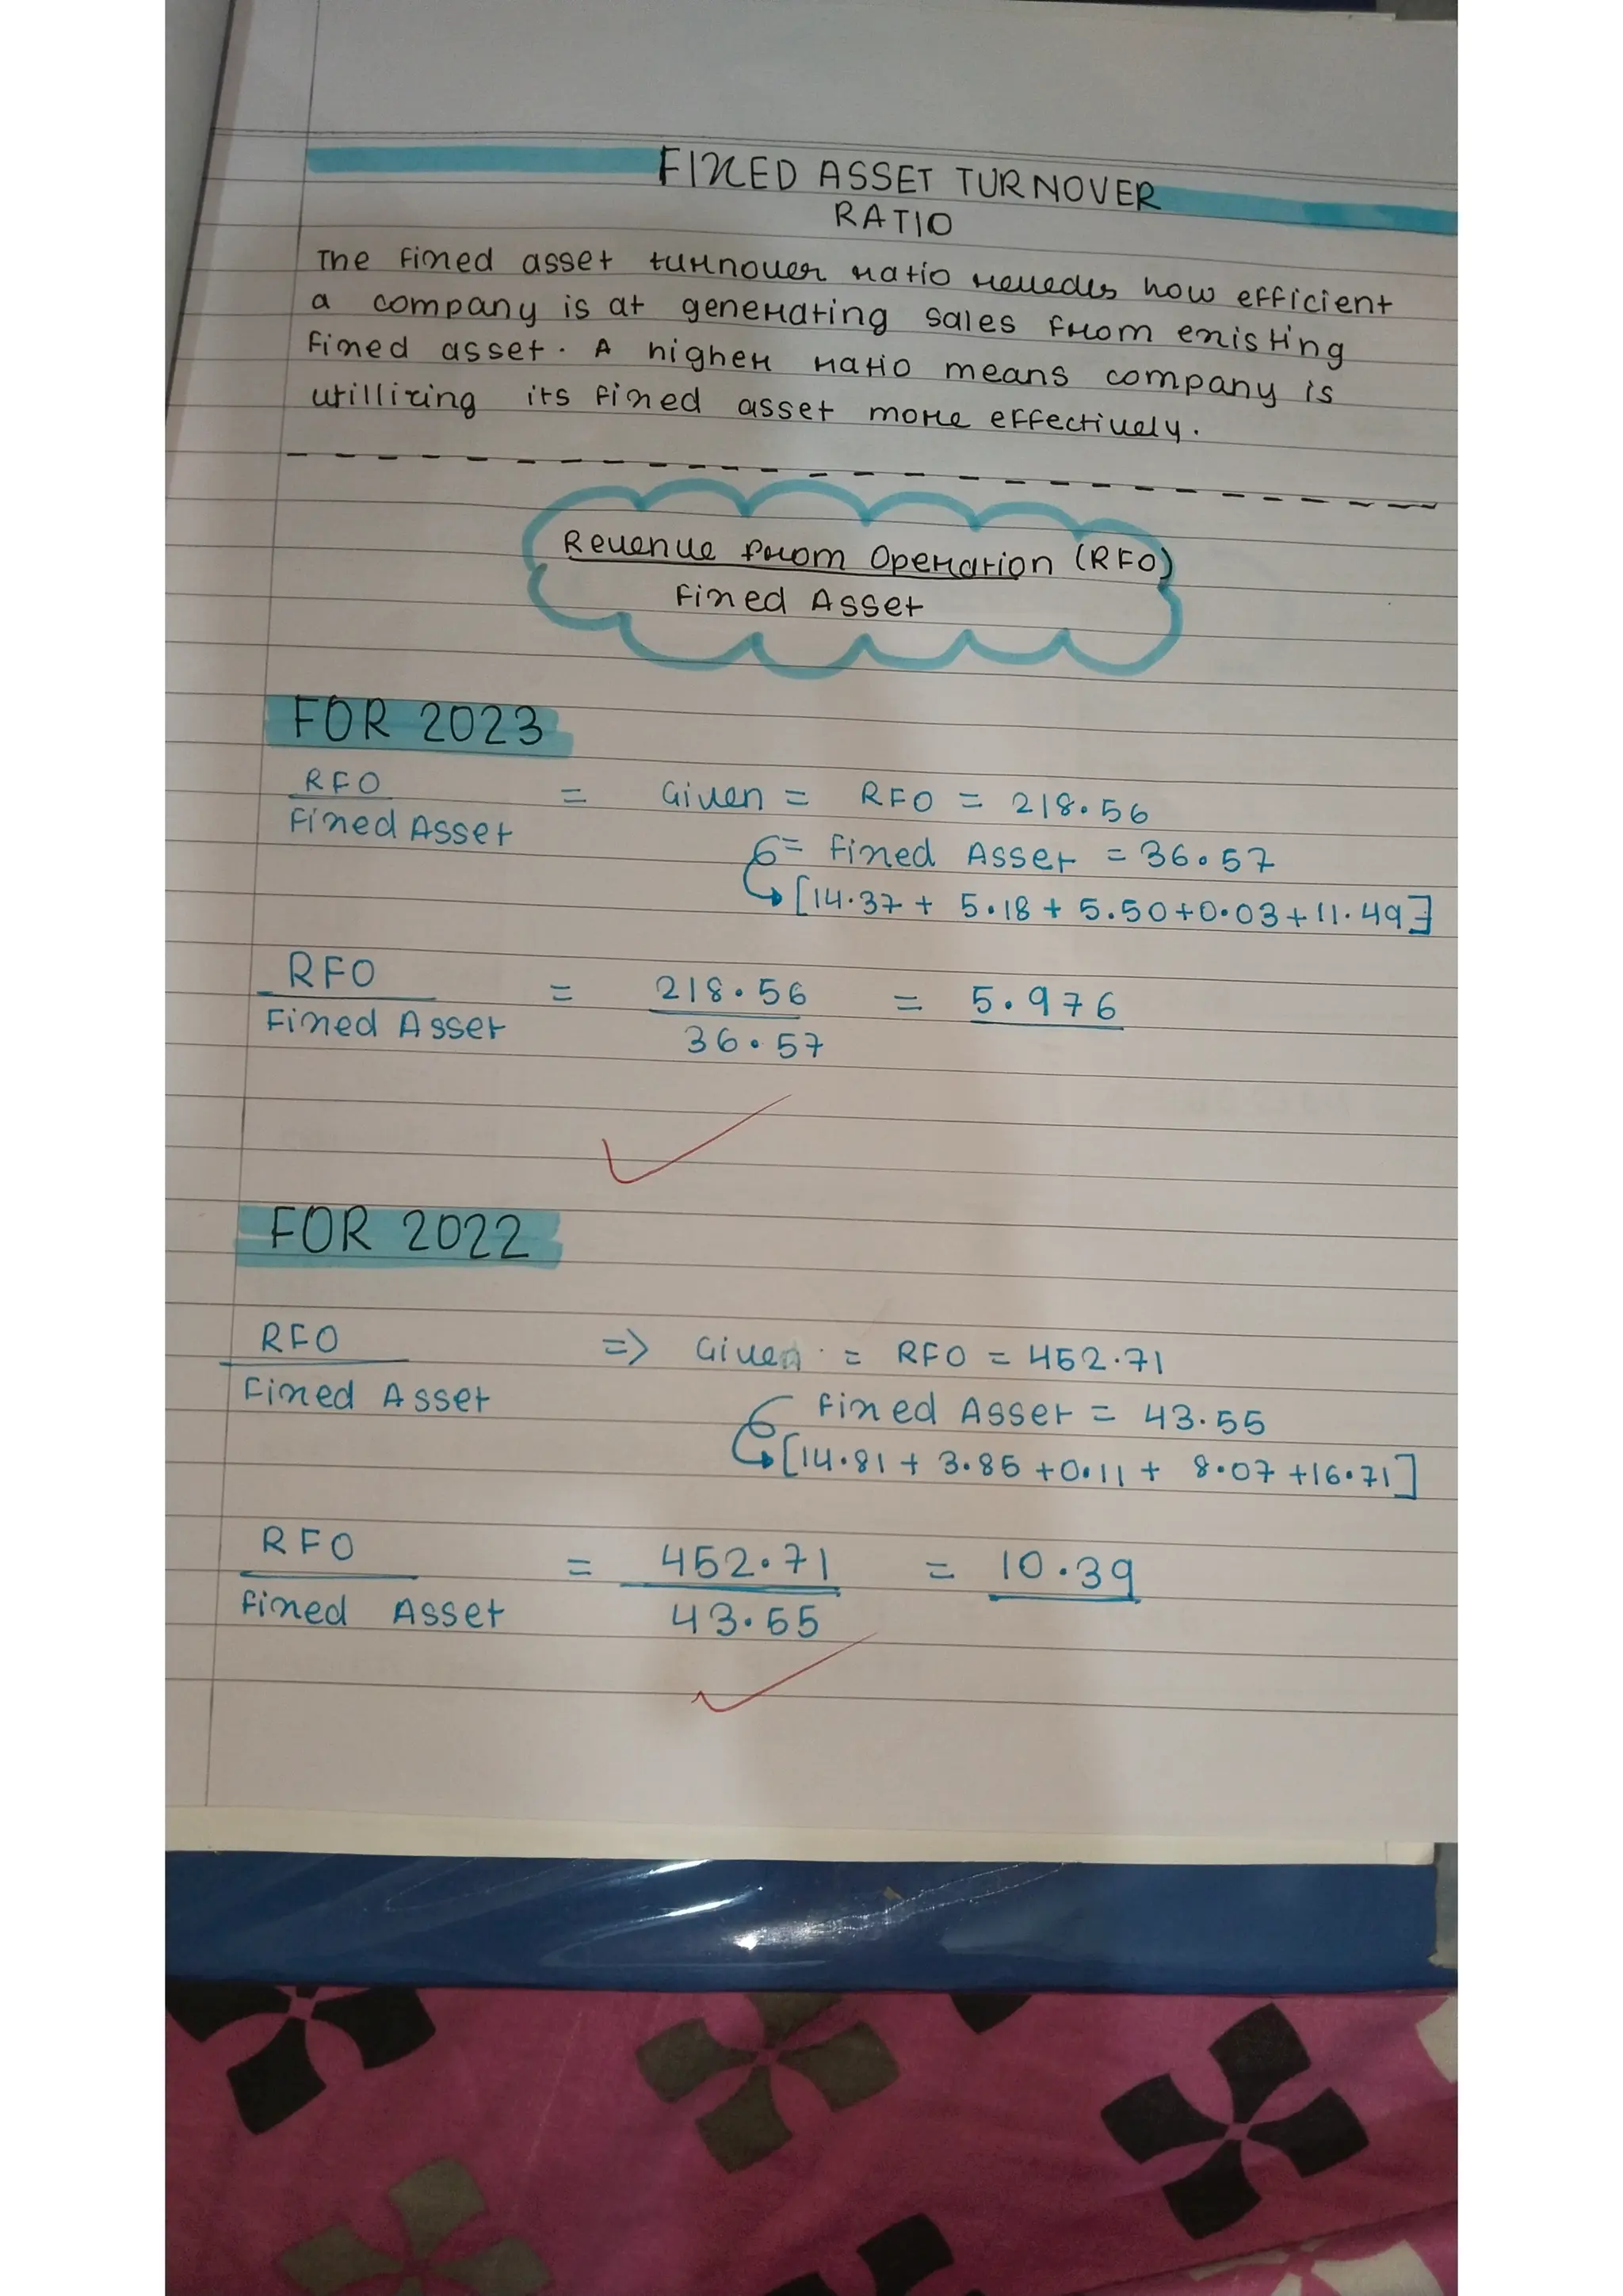 FIXED ASSET TURNOVER
RATIO
The fixed asset turnover ratio reveals how efficient
a company is at generating sales from existing
fixed asset. A higher ratio means company is
utillizing its fixed asset more effectively.
Revenue from Operation (RFO)
Fixed Asset
FOR 2023
RFO = Given = RFO = 218.56
Fixed Asset
= Fixed Asset = 36.57
[14.37 + 5.18 + 5.50 + 0.03 + 11.49]
RFO = 218.56 = 5.976
Fixed Asset 36.57
FOR 2022
RFO => Given = RFO = 452.71
Fixed Asset
Fixed Asset = 43.55
[14.81 + 3.85 + 0.11 + 8.07 + 16.71]
RFO = 452.71 = 10.39
Fixed Asset 43.55